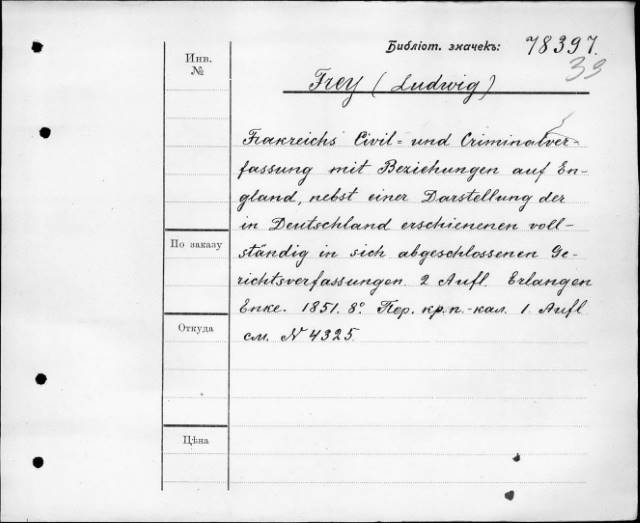 Библіот. значекъ: 78397.
39
Инв. №
Frey (Ludwig)
Frakreichs Civil= und Criminalver-
fassung mit Beziehungen auf En-
gland, nebst einer Darstellung der
in Deutschland erschienenen voll-
ständig in sich abgeschlossenen Ge-
richtsverfassungen. 2 Aufl. Erlangen
Enke. 1851. 8º. Пер. кр.п.-кал. 1 Aufl
см. N 4325.
По заказу
Откуда
Цѣна